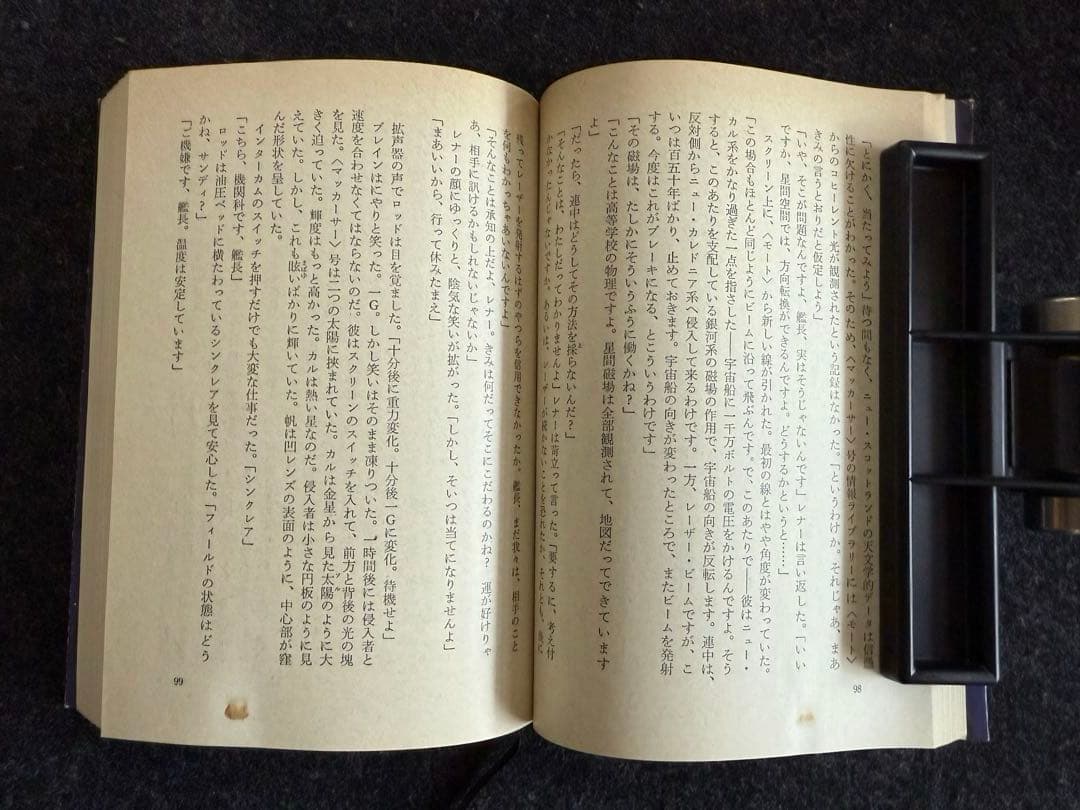 「とにかく、当たってみよう」待つ間もなく、ニュー・スコットランドの天文学的データは信憑
性に欠けることがわかった。そのため、〈マッカーサー〉号の情報ライブラリーには〈モート〉
からのコヒーレント光が観測されたという記録はなかった。「というわけか。それじゃあ、まあ
きみの言うとおりだと仮定しよう」
「いや、そこが問題なんですよ、艦長、実はそうじゃないんです」レナーは言い返した。「いい
ですか、星間空間では、方向転換ができるんですよ。どうするかというと……」
スクリーン上に、〈モート〉から新しい線が引かれた。最初の線とはやや角度が変わっていた。
「この場合もほとんど同じようにビームに沿って飛ぶんです。で、このあたりで――彼はニュー・
カル系をかなり過ぎた一点を指さした――宇宙船に一千万ボルトの電圧をかけるんですよ。そう
すると、このあたりを支配している銀河系の磁場の作用で、宇宙船の向きが反転します。連中は、
反対側からニュー・カレドニア系へ侵入して来るわけです。一方、レーザー・ビームですが、こ
いつは百五十年ばかり、止めておきます。宇宙船の向きが変わったところで、またビームを発射
する。今度はこれがブレーキになる、とこういうわけです」
「その磁場は、たしかにそういうふうに働くかね?」
「こんなことは高等学校の物理ですよ。星間磁場は全部観測されて、地図だってできています
よ」
「だったら、連中はどうしてその方法を採らないんだ?」
「そんなことは、わたしだってわかりませんよ」レナーは苛立って言った。「要するに、考え付
かなかったんじゃないですか。あるいは、レーザーが続かないことを恐れたか。それとも、後に
残ってレーザーを発射するはずのやつらを信用できなかったか。艦長、まだ我々は、相手のこと
を何もわかっちゃあいないんですよ」
「そんなことは承知の上だよ、レナー。きみは何だってそこにこだわるのかね? 運が好けりゃ
あ、相手に訊けるかもしれないじゃないか」
レナーの顔にゆっくりと、陰気な笑いが拡がった。「しかし、そいつは当てになりませんよ」
「まあいいから、行って休みたまえ」
拡声器の声でロッドは目を覚ました。「十分後に重力変化。十分後一Gに変化。待機せよ」
ブレインはにやりと笑った。一G。しかし笑いはそのまま凍りついた。一時間後には侵入者と
速度を合わせなくてはならないのだ。彼はスクリーンのスイッチを入れて、前方と背後の光の塊
を見た。〈マッカーサー〉号は二つの太陽に挾まれていた。カルは金星から見た太陽のように大
きく迫っていた。輝度はもっと高かった。カルは熱い星なのだ。侵入者は小さな円板のように見
えていた。しかし、これも眩いばかりに輝いていた。帆は凹レンズの表面のように、中心部が窪
んだ形状を呈していた。
インターカムのスイッチを押すだけでも大変な仕事だった。「シンクレア」
「こちら、機関科です、艦長」
ロッドは油圧ベッドに横たわっているシンクレアを見て安心した。「フィールドの状態はどう
かね、サンディ?」
「ご機嫌です、艦長。温度は安定しています」
98
99